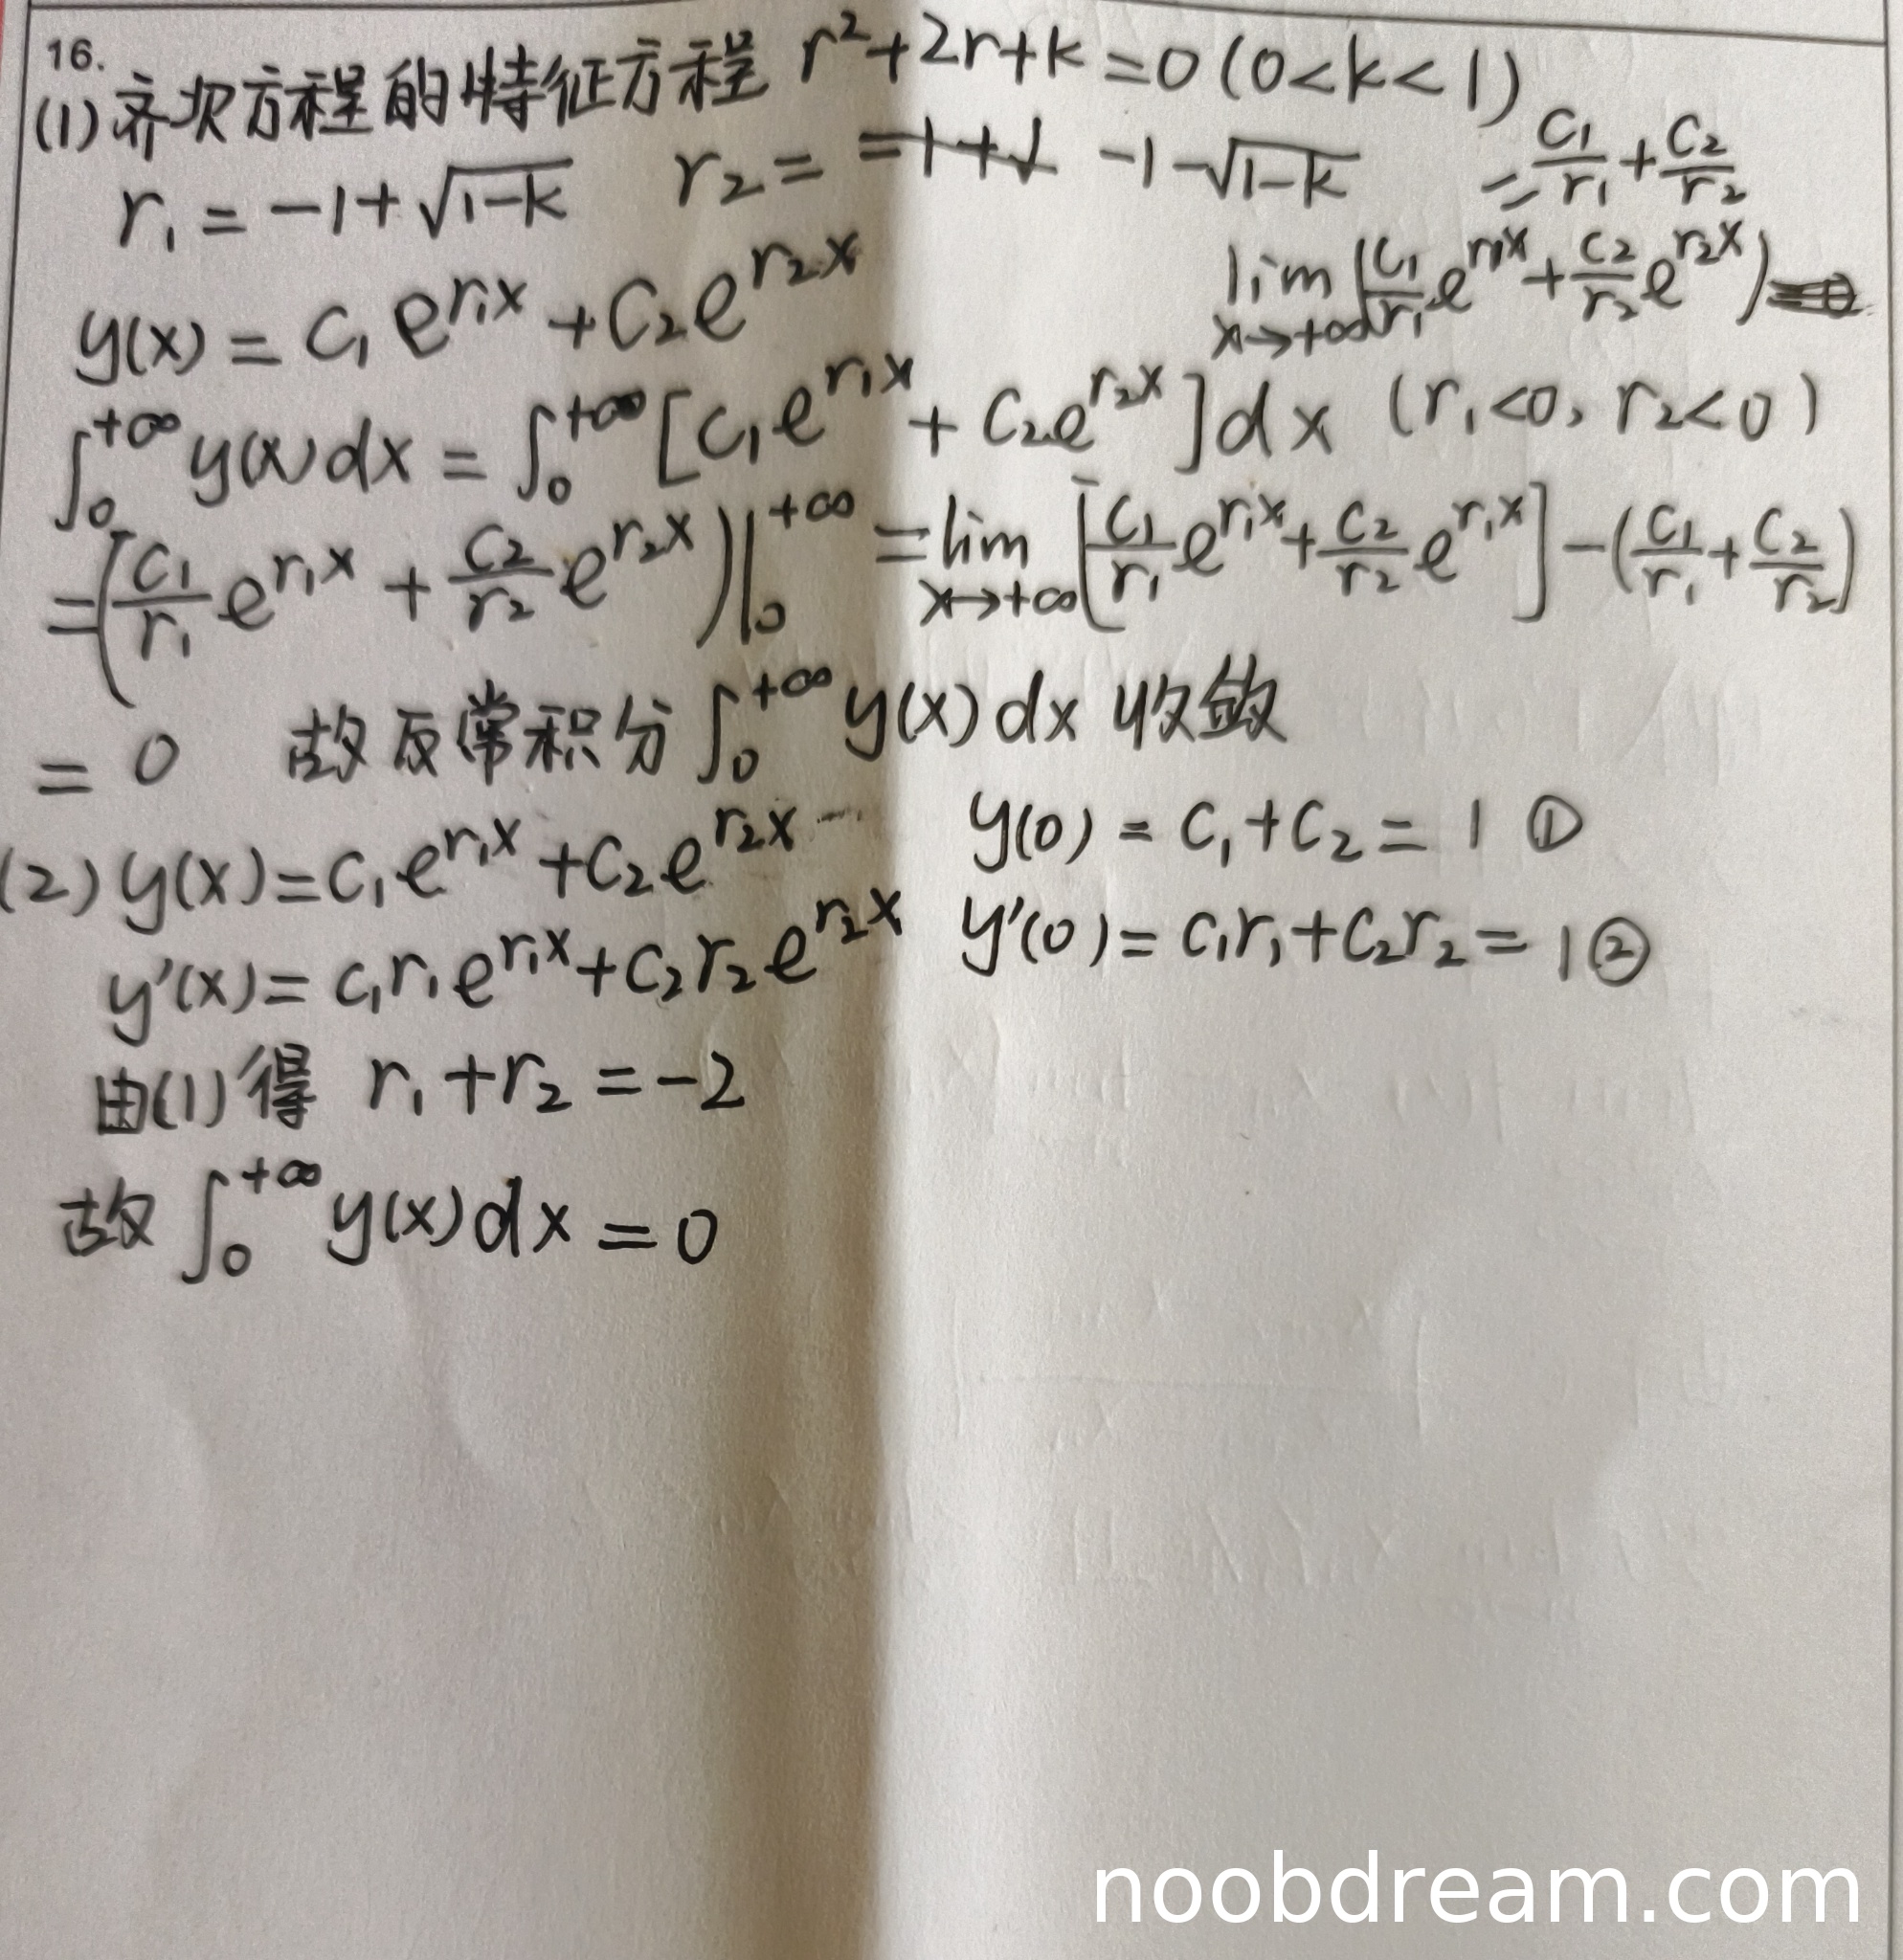 16.
(1) 齐次方程的特征方程 r²+2r+k=0 (0<k<1)
r₁ = -1+√(1-k)   r₂ = -1-√(1-k)
= C₁/r₁ + C₂/r₂
y(x) = C₁e^(r₁x) + C₂e^(r₂x)
lim x→+∞ (C₁/r₁ e^(r₁x) + C₂/r₂ e^(r₂x))
∫₀^(+∞) y(x)dx = ∫₀^(+∞) [C₁e^(r₁x) + C₂e^(r₂x)]dx (r₁<0, r₂<0)
= (C₁/r₁ e^(r₁x) + C₂/r₂ e^(r₂x))|₀^(+∞) = lim x→+∞ [C₁/r₁ e^(r₁x) + C₂/r₂ e^(r₁x)] - (C₁/r₁ + C₂/r₂)
= 0   故反常积分 ∫₀^(+∞) y(x)dx 收敛
(2) y(x) = C₁e^(r₁x) + C₂e^(r₂x)   y(0) = C₁+C₂ = 1 ①
y'(x) = C₁r₁e^(r₁x) + C₂r₂e^(r₂x)   y'(0) = C₁r₁+C₂r₂ = 1 ②
由(1)得 r₁+r₂ = -2
故 ∫₀^(+∞) y(x)dx = 0
noobdream.com